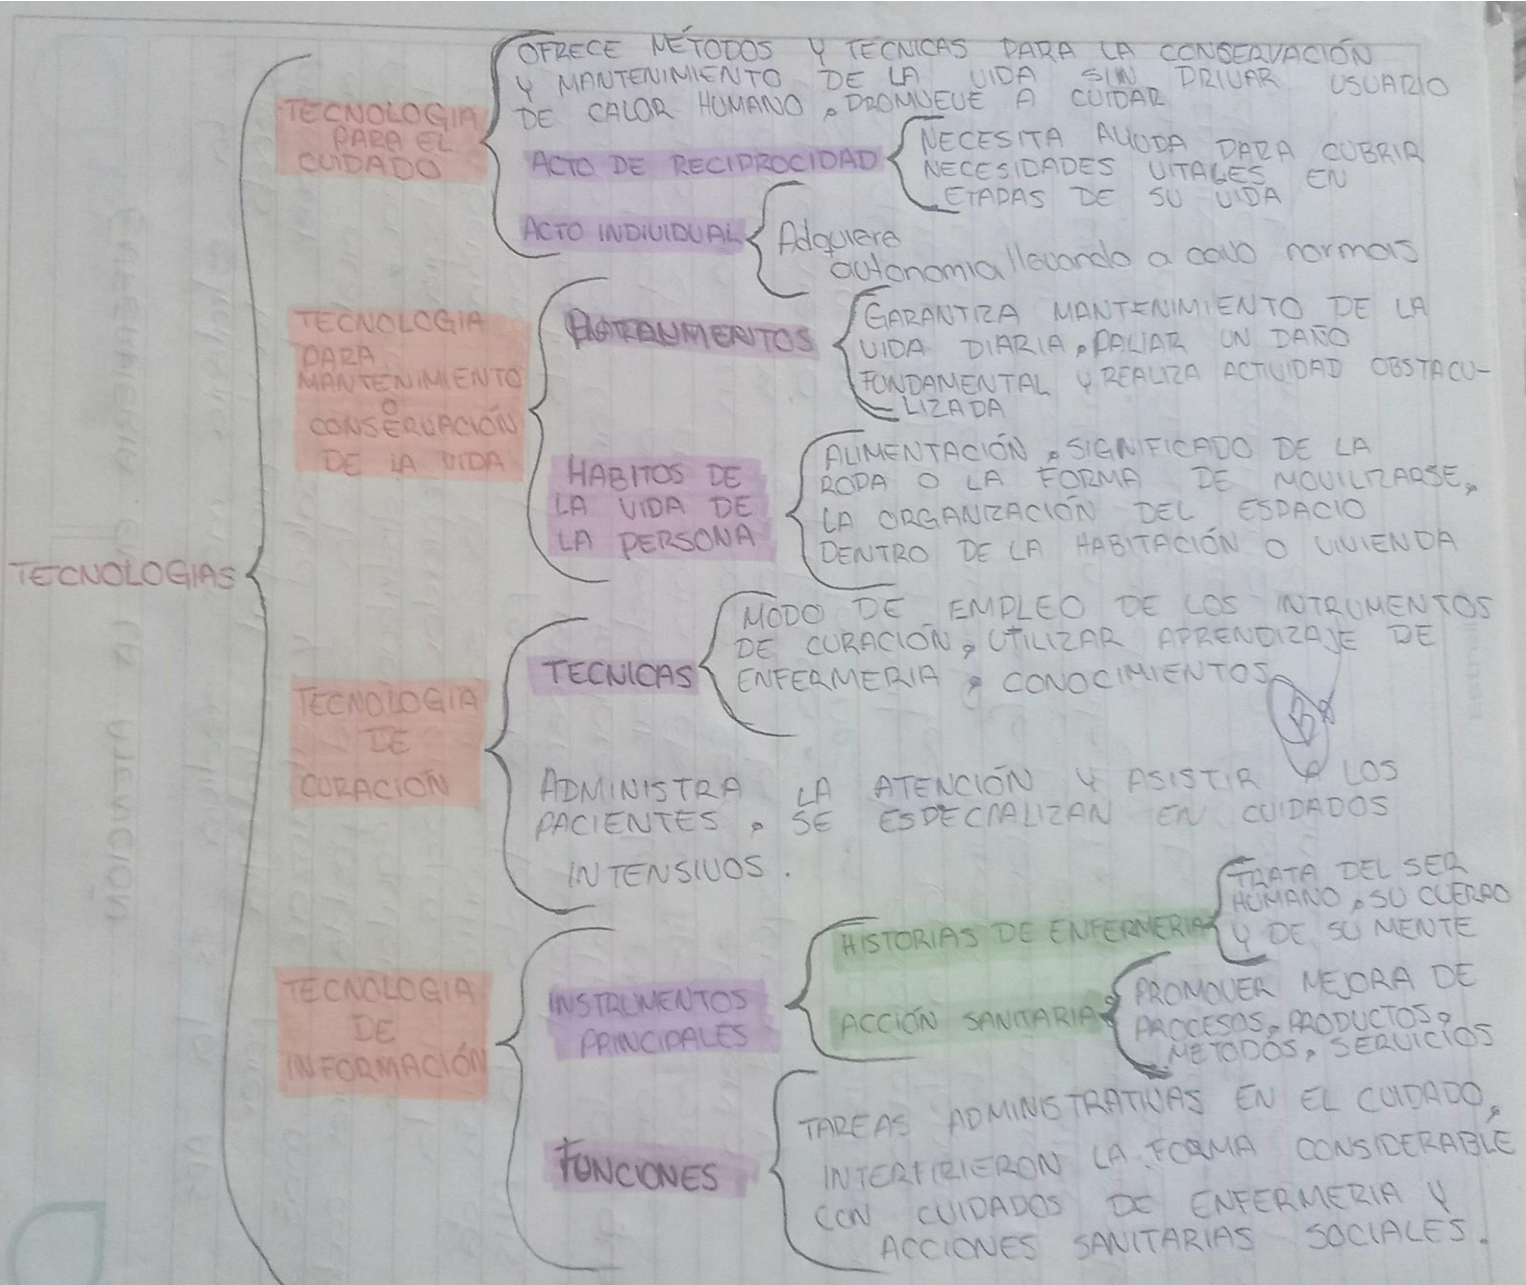 TECNOLOGIAS
TECNOLOGIA
PARA EL
CUIDADO
OFRECE MÉTODOS Y TECNICAS PARA LA CONSERVACIÓN
Y MANTENIMIENTO DE LA VIDA SIN PRIVAR USUARIO
DE CALOR HUMANO, PROMUEVE A CUIDAR
ACTO DE RECIPROCIDAD
NECESITA AYUDA PARA CUBRIR
NECESIDADES VITALES EN
ETAPAS DE SU VIDA
ACTO INDIVIDUAL
Adquiere
autonomia llevando a cavo normas
TECNOLOGIA
PARA
MANTENIMIENTO
O
CONSERVACIÓN
DE LA VIDA
GARANTIZA MANTENIMIENTO DE LA
VIDA DIARIA, PALIAR UN DAÑO
FUNDAMENTAL Y REALIZA ACTIVIDAD OBSTACU-
LIZADA
HABITOS DE
LA VIDA DE
LA PERSONA
ALIMENTACIÓN, SIGNIFICADO DE LA
ROPA O LA FORMA DE MOVILIZARSE,
LA ORGANIZACIÓN DEL ESPACIO
DENTRO DE LA HABITACIÓN O VIVIENDA
TECNOLOGIA
DE
CURACIÓN
TECNICAS
MODO DE EMPLEO DE LOS INTRUMENTOS
DE CURACIÓN, UTILIZAR APRENDIZAJE DE
ENFERMERIA, CONOCIMIENTOS
ADMINISTRA LA ATENCIÓN Y ASISTIR A LOS
PACIENTES, SE ESPECIALIZAN EN CUIDADOS
INTENSIVOS.
TECNOLOGIA
DE
INFORMACIÓN
INSTRUMENTOS
PRINCIPALES
HISTORIAS DE ENFERMERIA
TRATA DEL SER
HUMANO, SU CUERPO
Y DE SU MENTE
ACCIÓN SANITARIA
PROMOVER MEJORA DE
PROCESOS, PRODUCTOS,
METODOS, SERVICIOS
FUNCIONES
TAREAS ADMINISTRATIVAS EN EL CUIDADO,
INTERFIRIERON LA FORMA CONSIDERABLE
CON CUIDADOS DE ENFERMERIA Y
ACCIONES SANITARIAS SOCIALES.